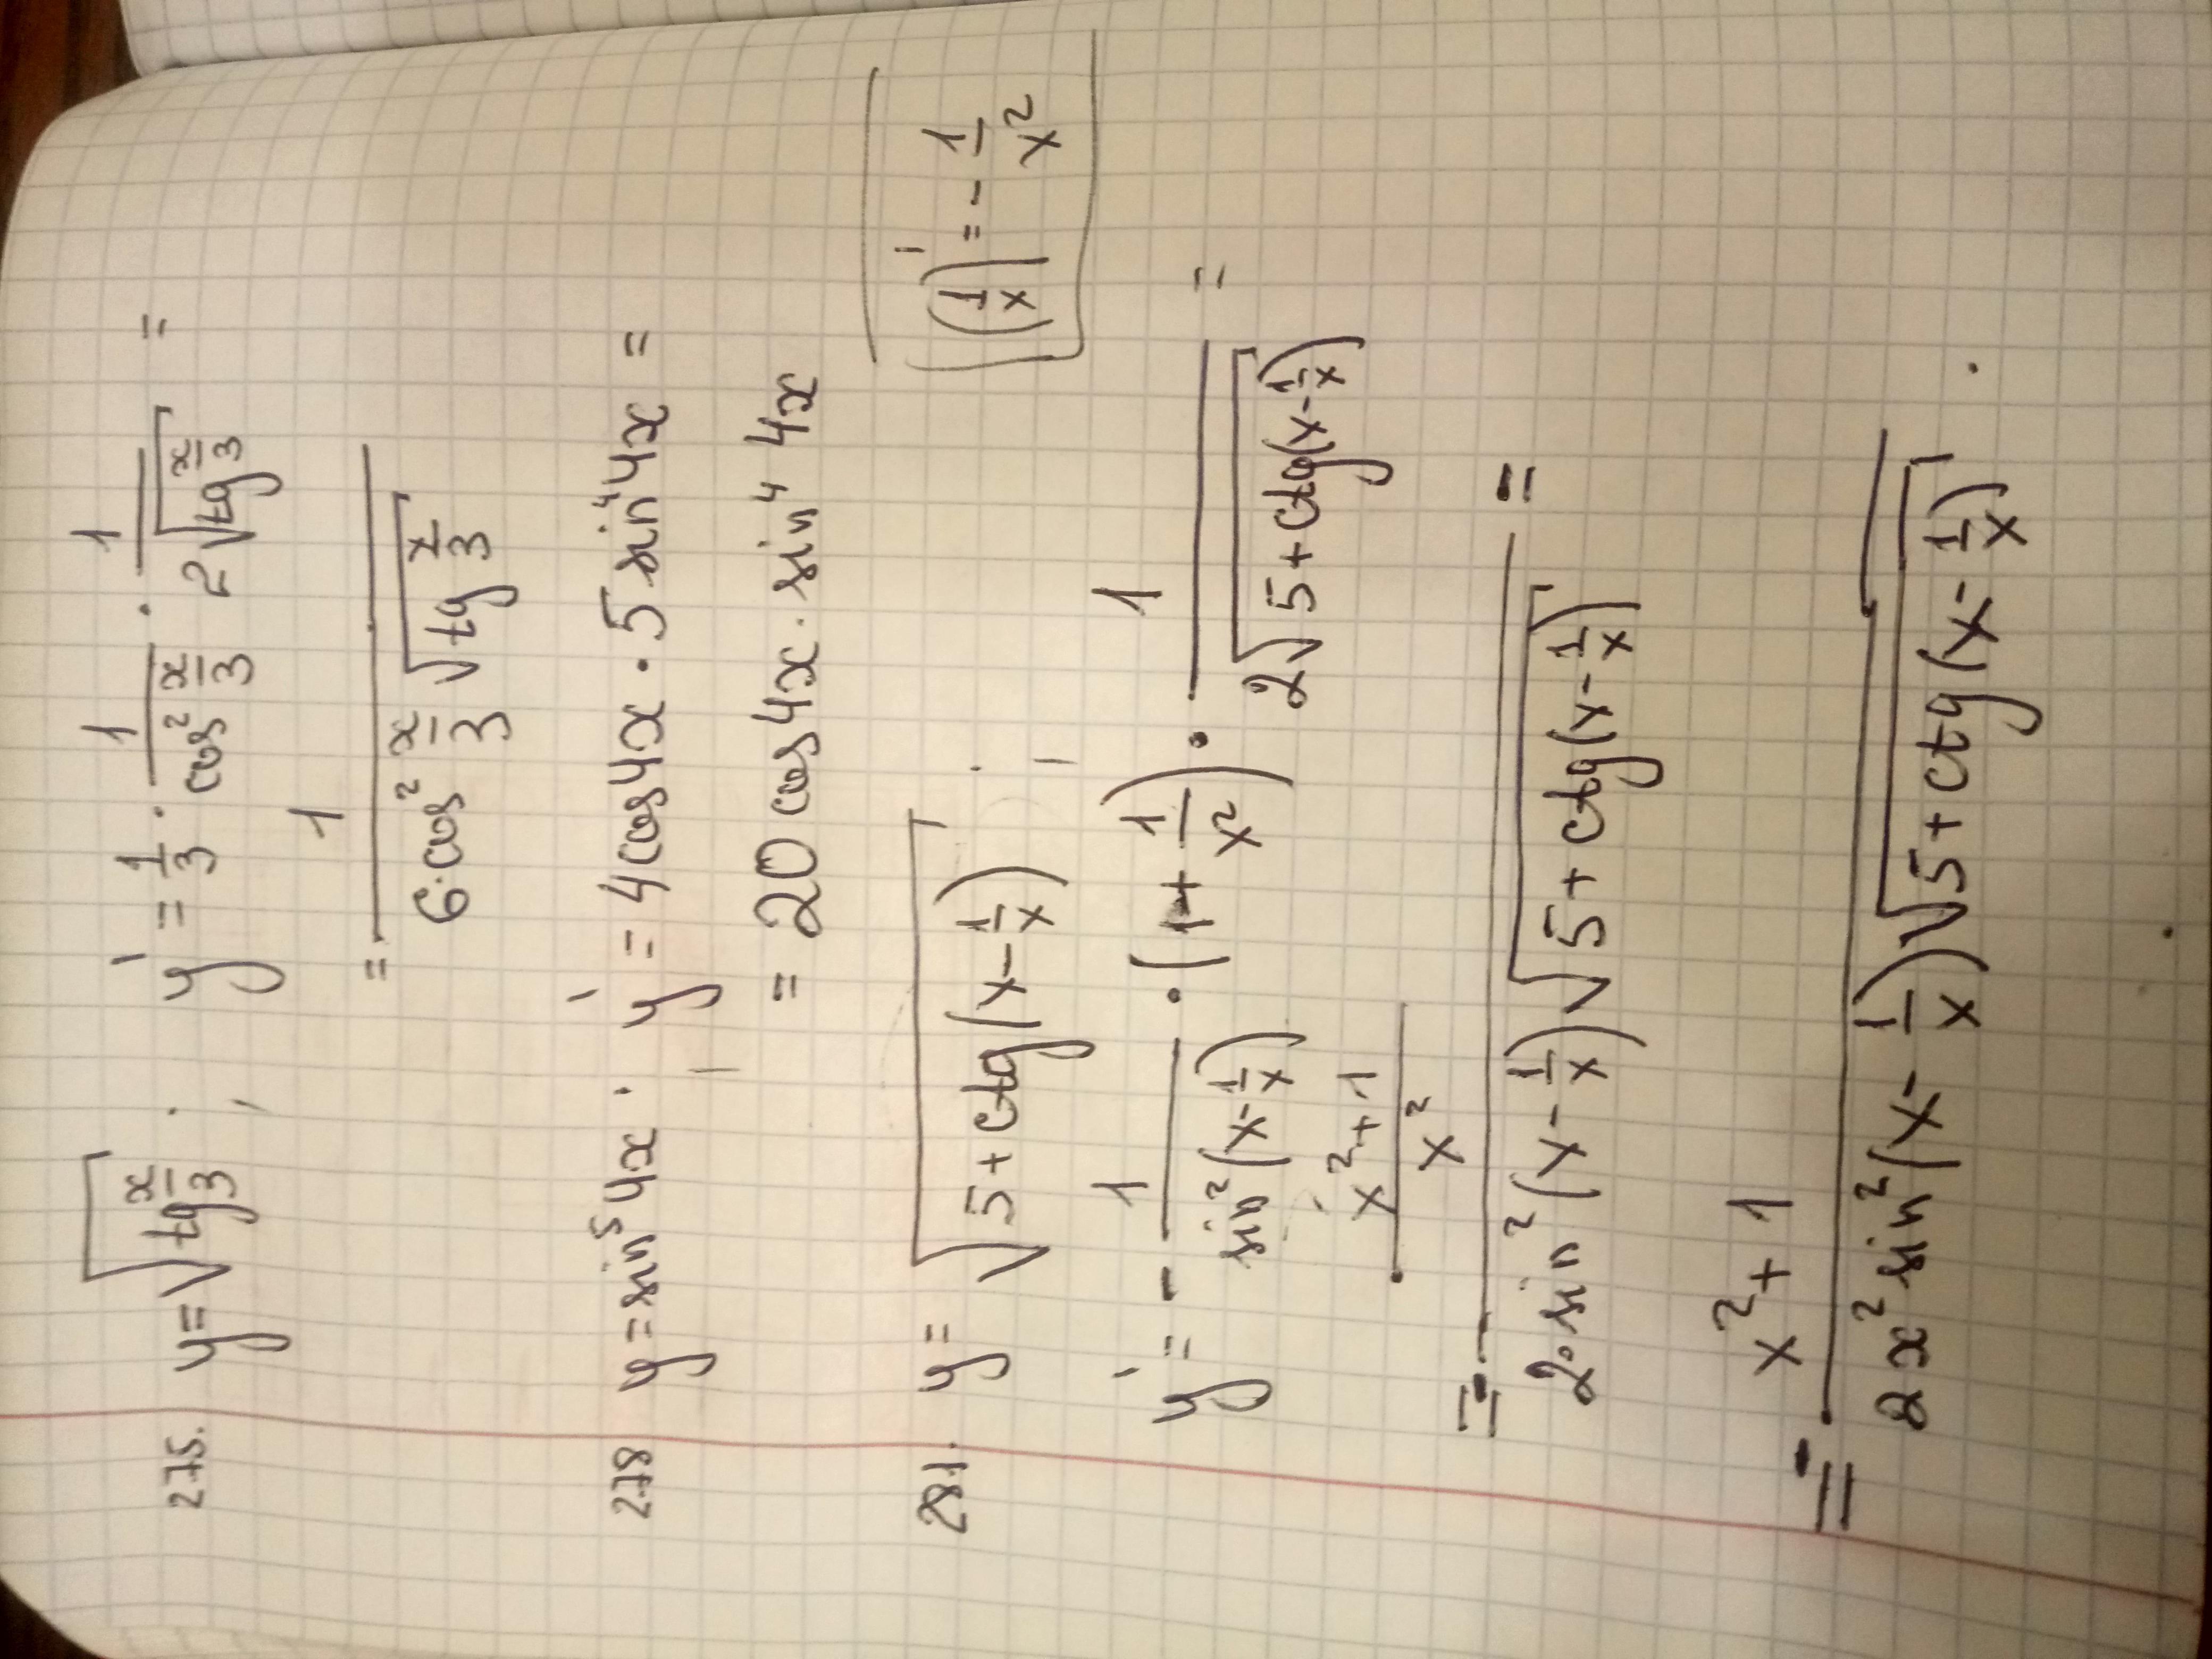 275. y=√(tg x/3) ; y' = 1/3 · 1/(cos² x/3) · 1/(2√(tg x/3)) =
= 1/(6·cos² x/3 √(tg x/3))
278 y=sin⁵4x ; y' = 4cos4x · 5 sin⁴4x =
= 20 cos4x · sin⁴ 4x
281. y = √(5+ctg(x-1/x)) ;
(1/x)' = - 1/x²
y' = - 1/(sin²(x-1/x)) · (1+ 1/x²) · 1/(2√(5+ctg(x-1/x))) =
= - ((x²+1)/x²)/(2·sin²(x-1/x)√(5+ctg(x-1/x))) =
= - (x²+1)/(2x² sin²(x-1/x)√(5+ctg(x-1/x))) .